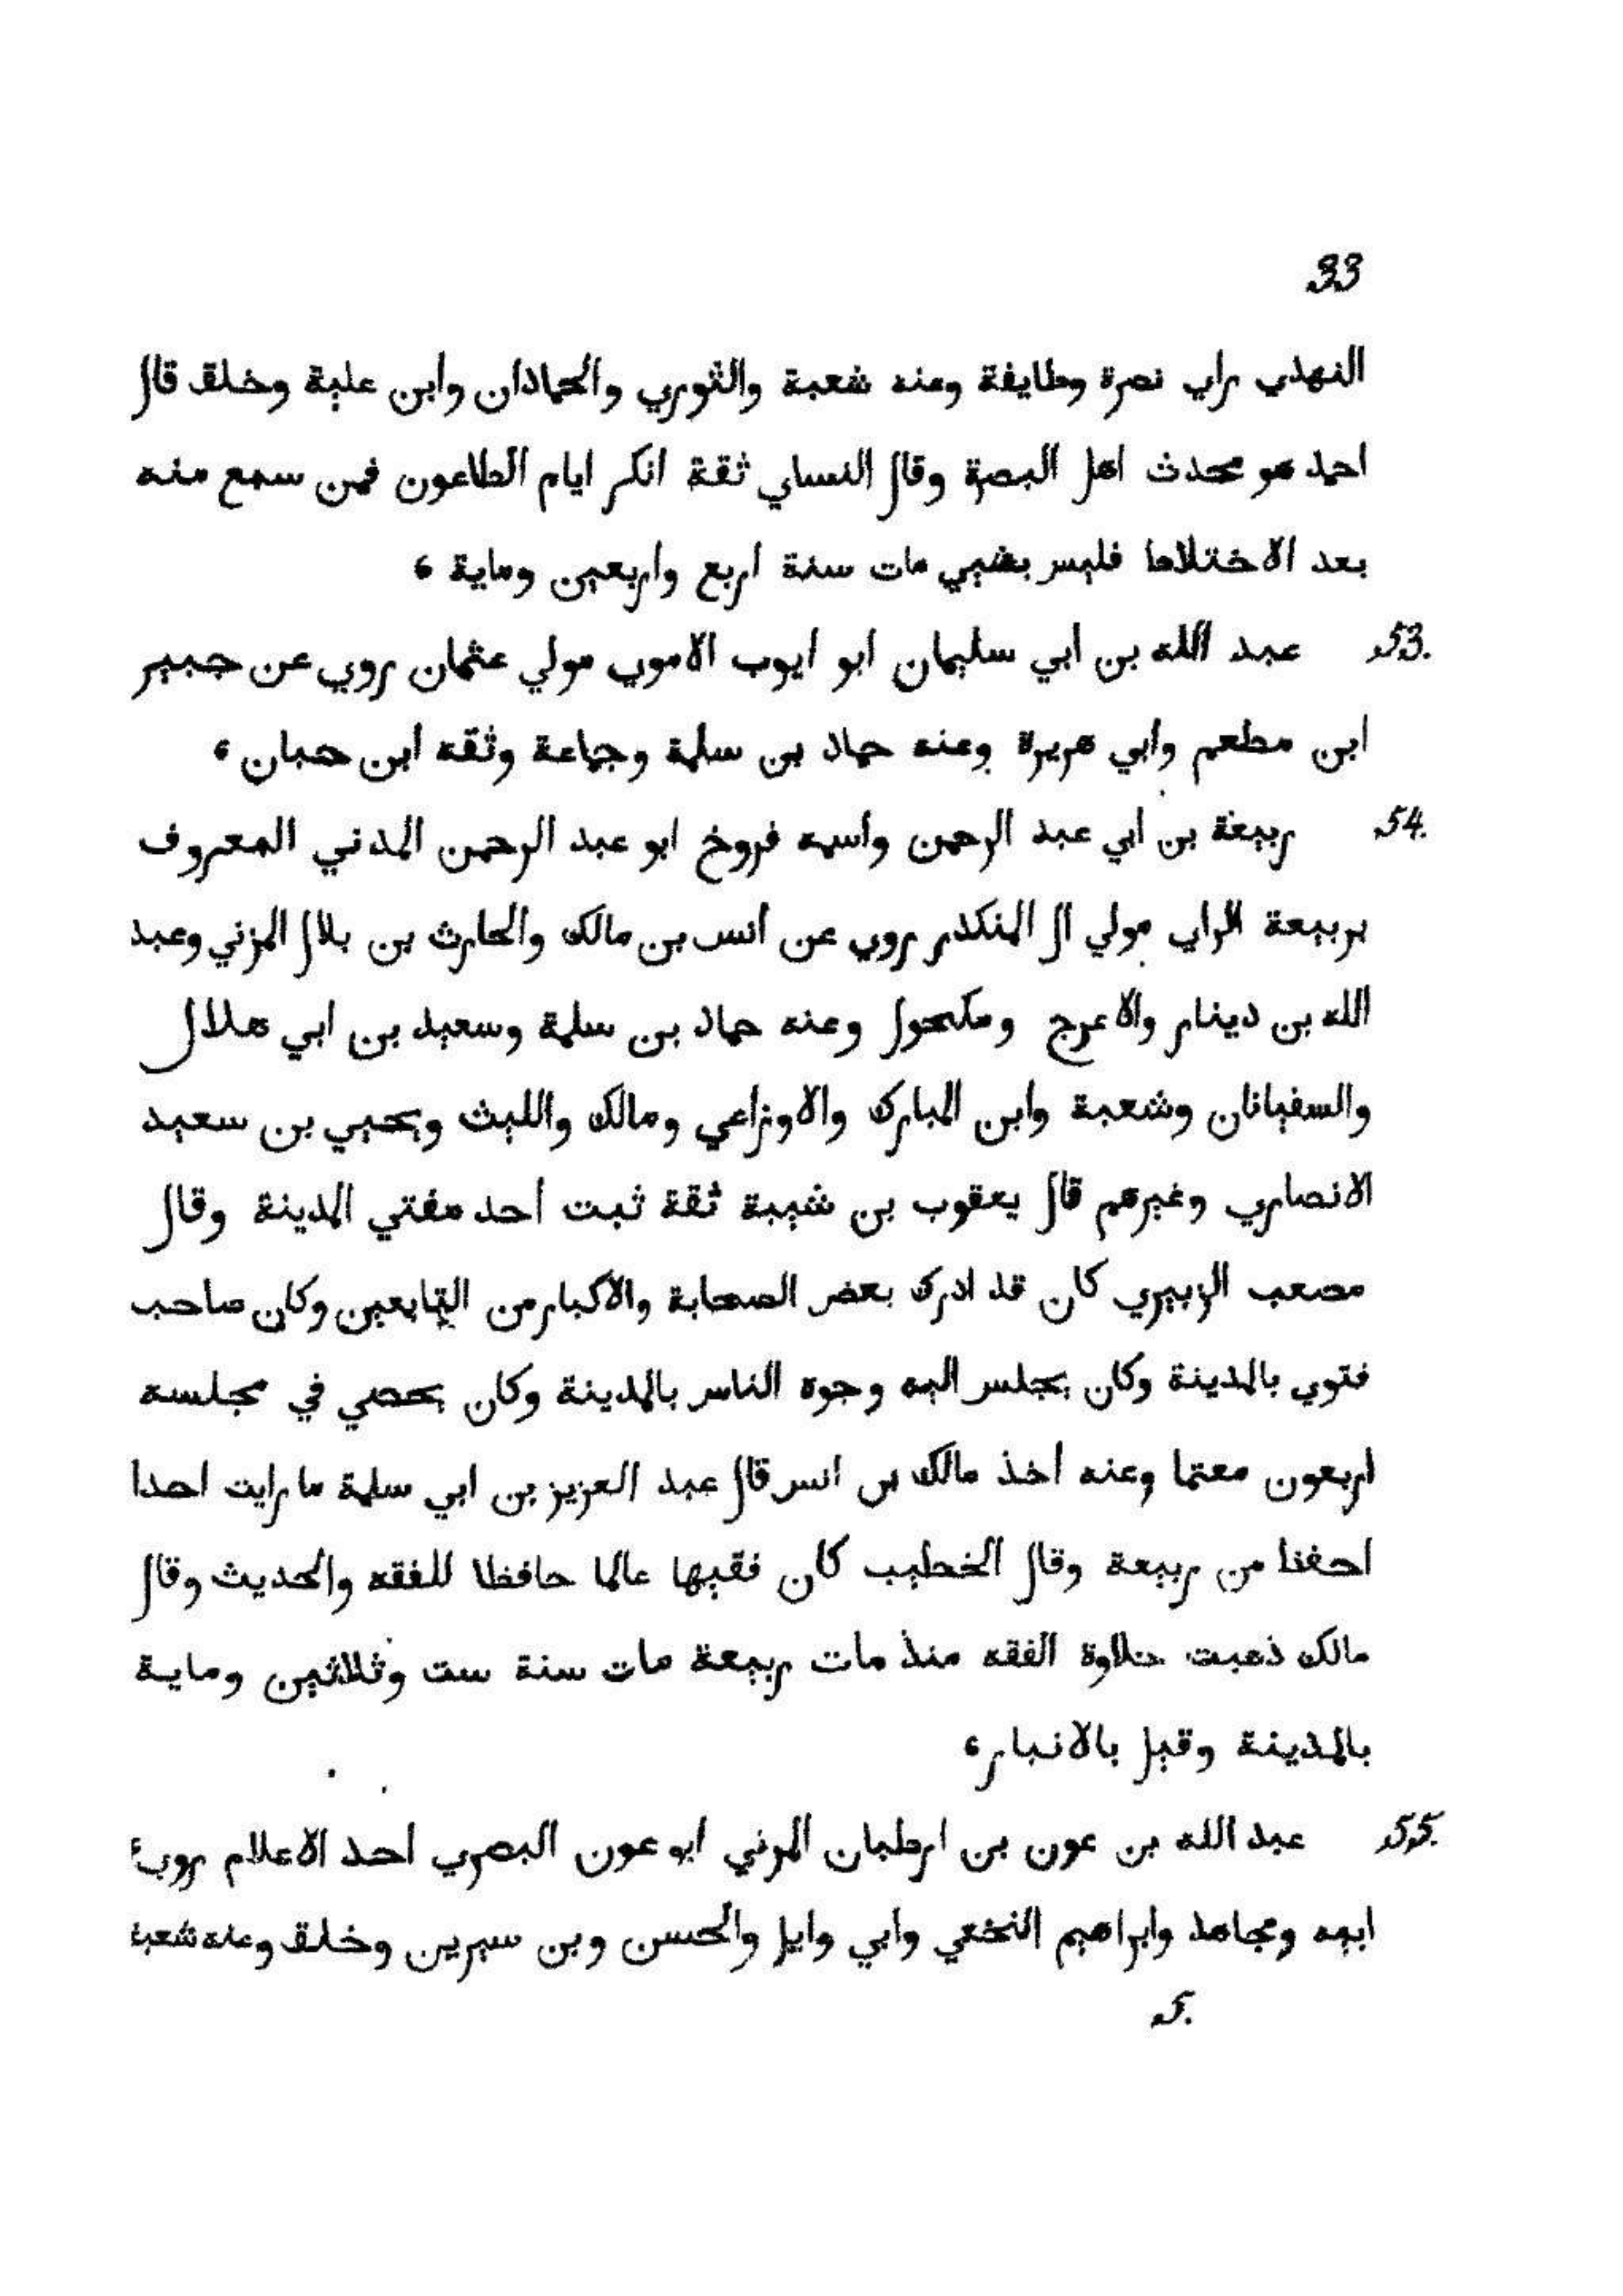 33
النهدي راي نصرة وطايفة وعنه شعبة والثوري والحمادان وابن علية وخلق قال
احمد هو محدث اهل البصرة وقال النساي ثقة انكر ايام الطاعون فمن سمع منه
بعد الاختلاط فليس بشيي مات سنة اربع واربعين وماية ،
53. عبد الله بن ابي سليمان ابو ايوب الاموي مولي عثمان روي عن جبير
ابن مطعم وابي هريرة وعنه حماد بن سلمة وجماعة وثقه ابن حبان ،
54. ربيعة بن ابي عبد الرحمن واسمه فروخ ابو عبد الرحمن المدني المعروف
بربيعة الراي مولي ال المنكدر روي عن انس بن مالك والحارث بن بلال المزني وعبد
الله بن دينار والاعرج ومكحول وعنه حماد بن سلمة وسعيد بن ابي هلال
والسفيانان وشعبة وابن المبارك والاوزاعي ومالك والليث ويحيي بن سعيد
الانصاري وغيرهم قال يعقوب بن شيبة ثقة ثبت احد مفتي المدينة وقال
مصعب الزبيري كان قد ادرك بعض الصحابة والاكبار من التابعين وكان صاحب
فتوي بالمدينة وكان يجلس اليه وجوه الناس بالمدينة وكان يحصي في مجلسه
اربعون معتما وعنه اخذ مالك بن انس قال عبد العزيز بن ابي سلمة ما رايت احدا
احفظ من ربيعة وقال الخطيب كان فقيها عالما حافظا للفقه والحديث وقال
مالك ذهبت حلاوة الفقه منذ مات ربيعة مات سنة ست وثلاثين وماية
بالمدينة وقيل بالانبار ،
55. عبد الله بن عون بن ارطبان المزني ابو عون البصري احد الاعلام روي
ابيه ومجاهد وابراهيم النخعي وابي وايل والحسن وبن سيرين وخلق وعنه شعبة
5.